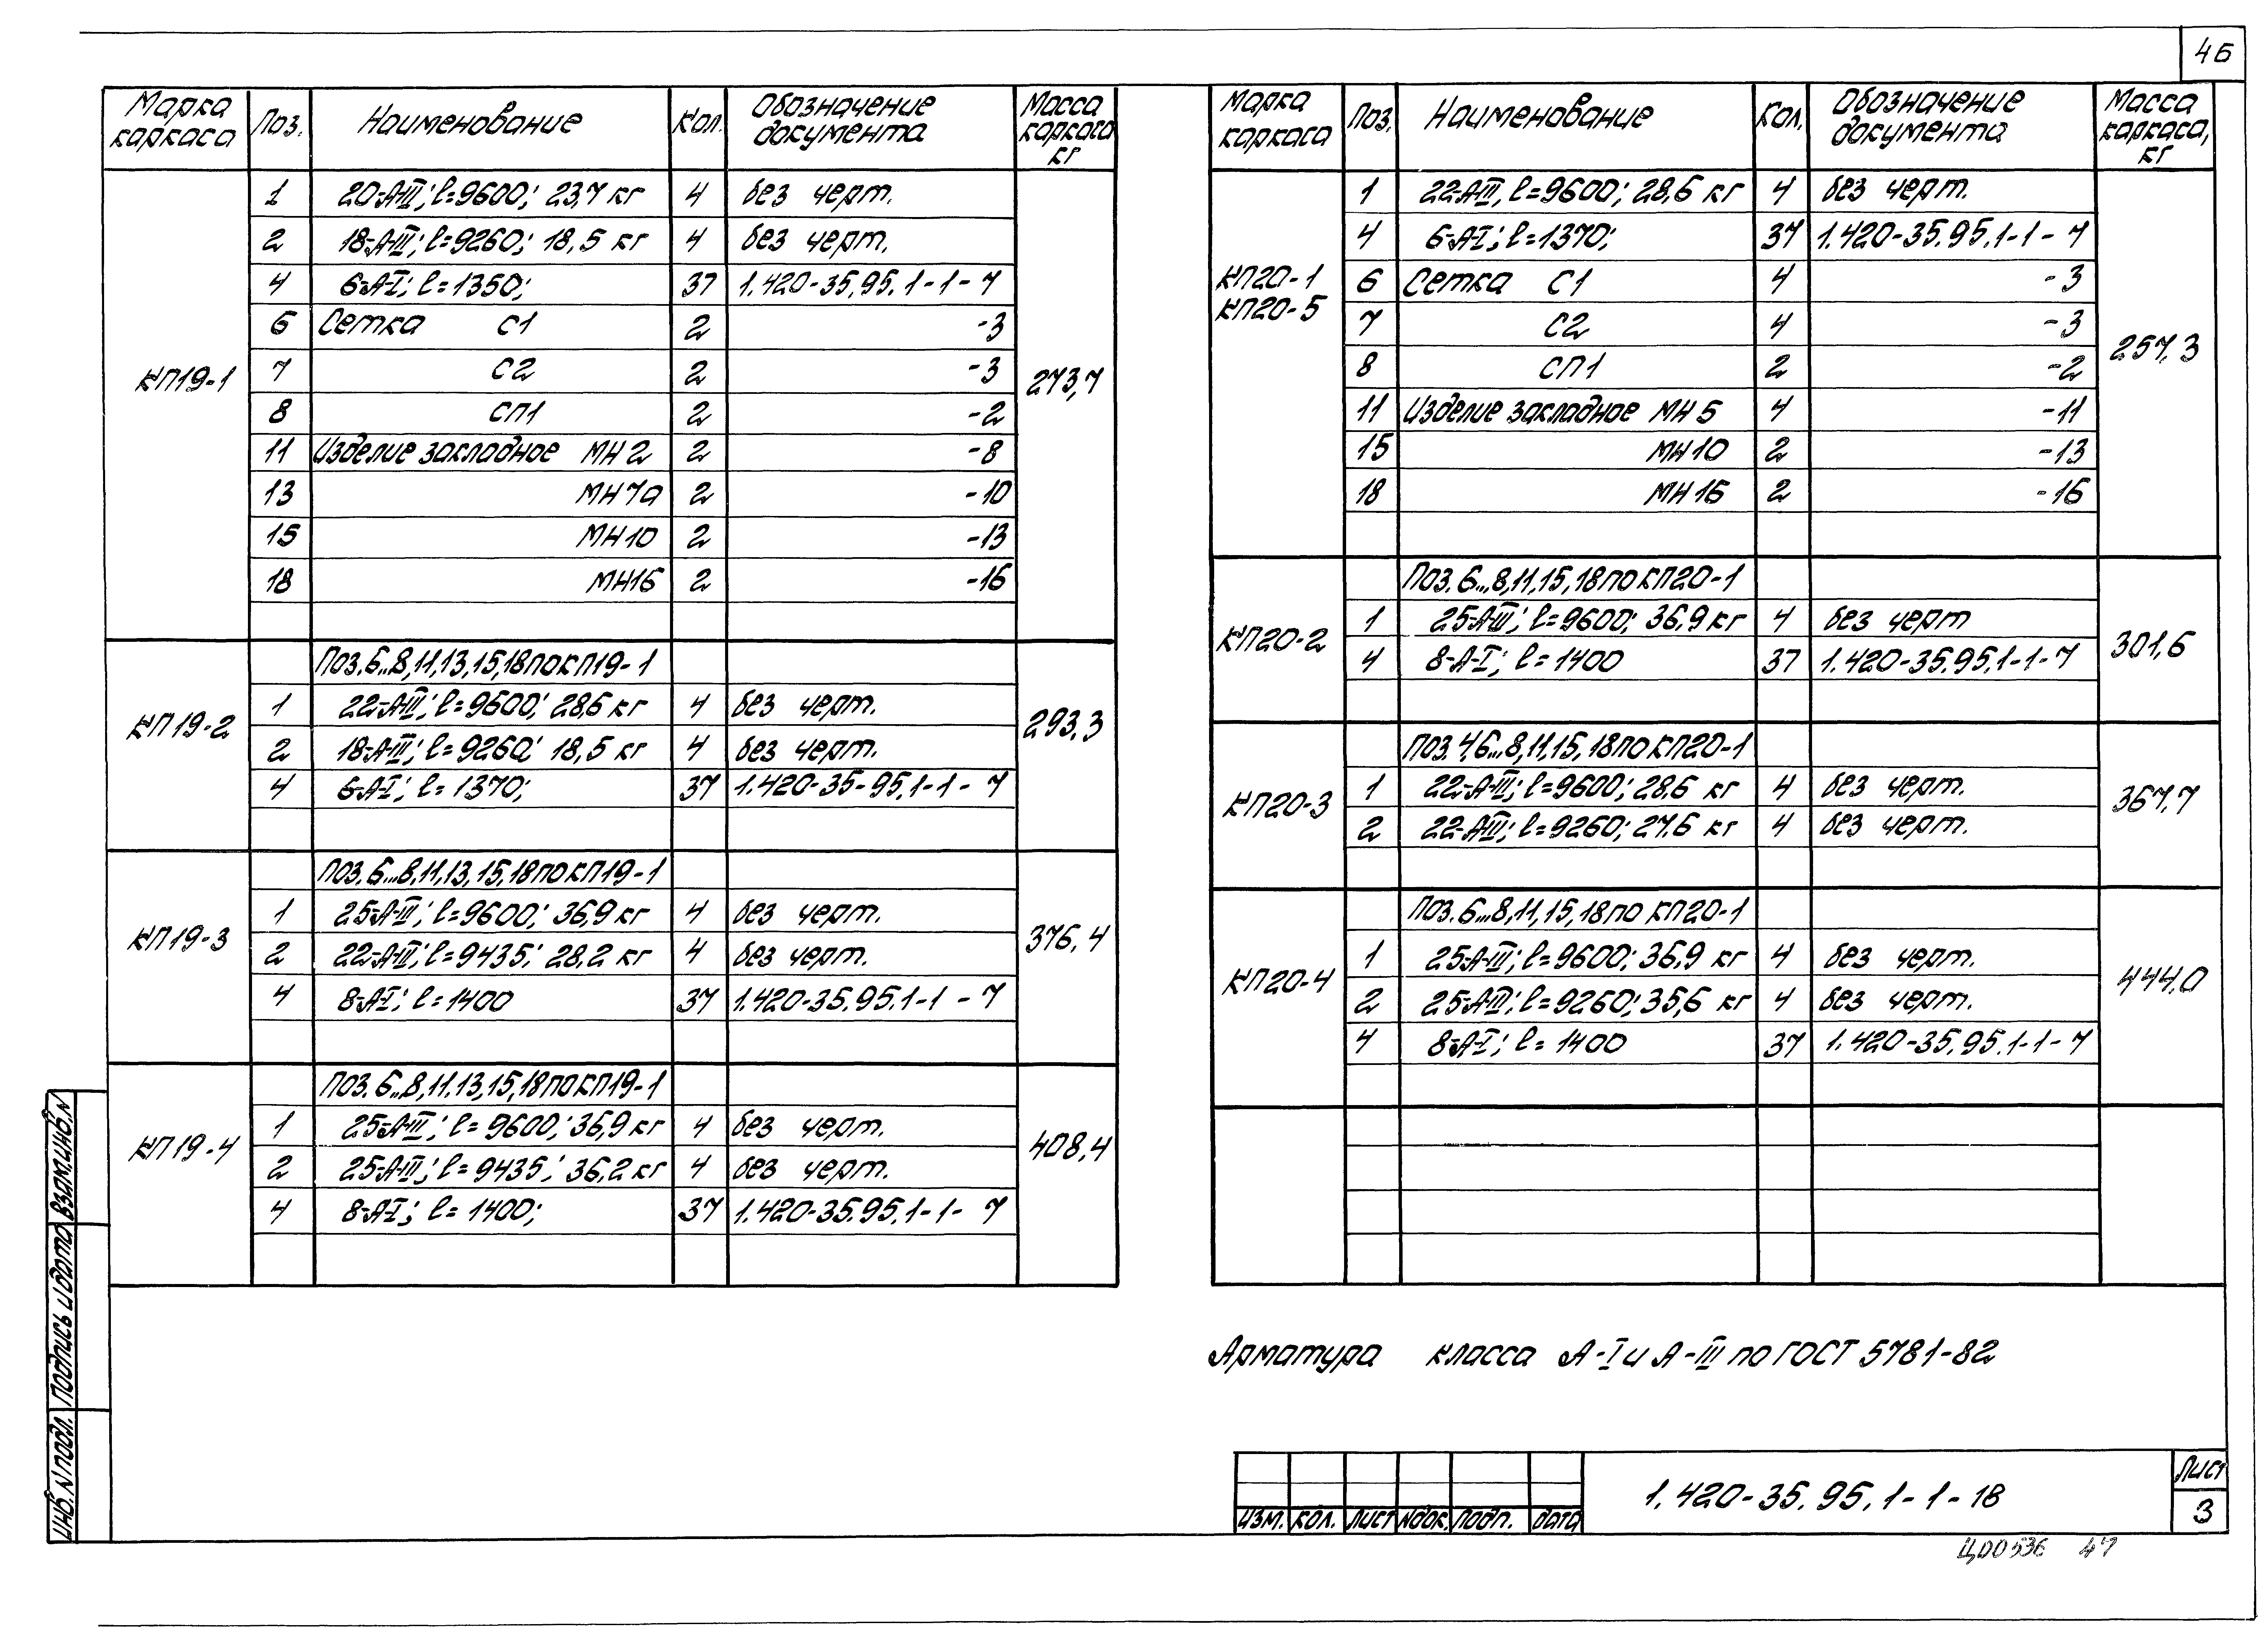 46
Марка каркаса Поз. Наименование Кол. Обозначение документа Масса каркаса кг
КП19-1 273,7
1 20-А-III; l=9600; 23,7 кг 4 без черт.
2 18-А-III; l=9260; 18,5 кг 4 без черт.
4 6-А-I; l=1350; 37 1.420-35.95.1-1-7
6 Сетка С1 2 -3
7 С2 2 -3
8 СП1 2 -2
11 Изделие закладное МН2 2 -8
13 МН7а 2 -10
15 МН10 2 -13
18 МН16 2 -16
КП19-2 293,3
Поз. 6...8,11,13,15,18 по КП19-1
1 22-А-III; l=9600; 28,6 кг 4 без черт.
2 18-А-III; l=9260; 18,5 кг 4 без черт.
4 6-А-I; l=1370; 37 1.420-35-95.1-1-7
КП19-3 376,4
Поз. 6...8,11,13,15,18 по КП19-1
1 25-А-III; l=9600; 36,9 кг 4 без черт.
2 22-А-III; l=9435; 28,2 кг 4 без черт.
4 8-А-I; l=1400 37 1.420-35.95.1-1-7
КП19-4 408,4
Поз. 6...8,11.13,15,18 по КП19-1
1 25-А-III; l=9600; 36,9 кг 4 без черт.
2 25-А-III; l=9435; 36,2 кг 4 без черт.
4 8-А-I; l=1400; 37 1.420-35.95.1-1-7
Марка каркаса Поз. Наименование Кол. Обозначение документа Масса каркаса, кг
КП20-1
КП20-5 257,3
1 22-А-III; l=9600; 28,6 кг 4 без черт.
4 6-А-I; l=1370; 37 1.420-35.95.1-1-7
6 Сетка С1 4 -3
7 С2 4 -3
8 СП1 2 -2
11 Изделие закладное МН5 4 -11
15 МН10 2 -13
18 МН16 2 -16
КП20-2 301,6
Поз. 6...8,11,15,18 по КП20-1
1 25-А-III; l=9600; 36,9 кг 4 без черт
4 8-А-I; l=1400 37 1.420-35.95.1-1-7
КП20-3 367,7
Поз. 4,6...8,11,15,18 по КП20-1
1 22-А-III; l=9600; 28,6 кг 4 без черт.
2 22-А-III; l=9260; 27,6 кг 4 без черт.
КП20-4 444,0
Поз. 6...8,11,15,18 по КП20-1
1 25-А-III; l=9600; 36,9 кг 4 без черт.
2 25-А-III; l=9260; 35,6 кг 4 без черт.
4 8-А-I; l=1400 37 1.420-35.95.1-1-7
Арматура класса А-I и А-III по ГОСТ 5781-82
Изм. Кол. Лист Nдок. Подп. Дата
1.420-35.95.1-1-18
Лист
3
ЦО0536 47
Инв. N подл. Подпись и дата Взам.инв.N